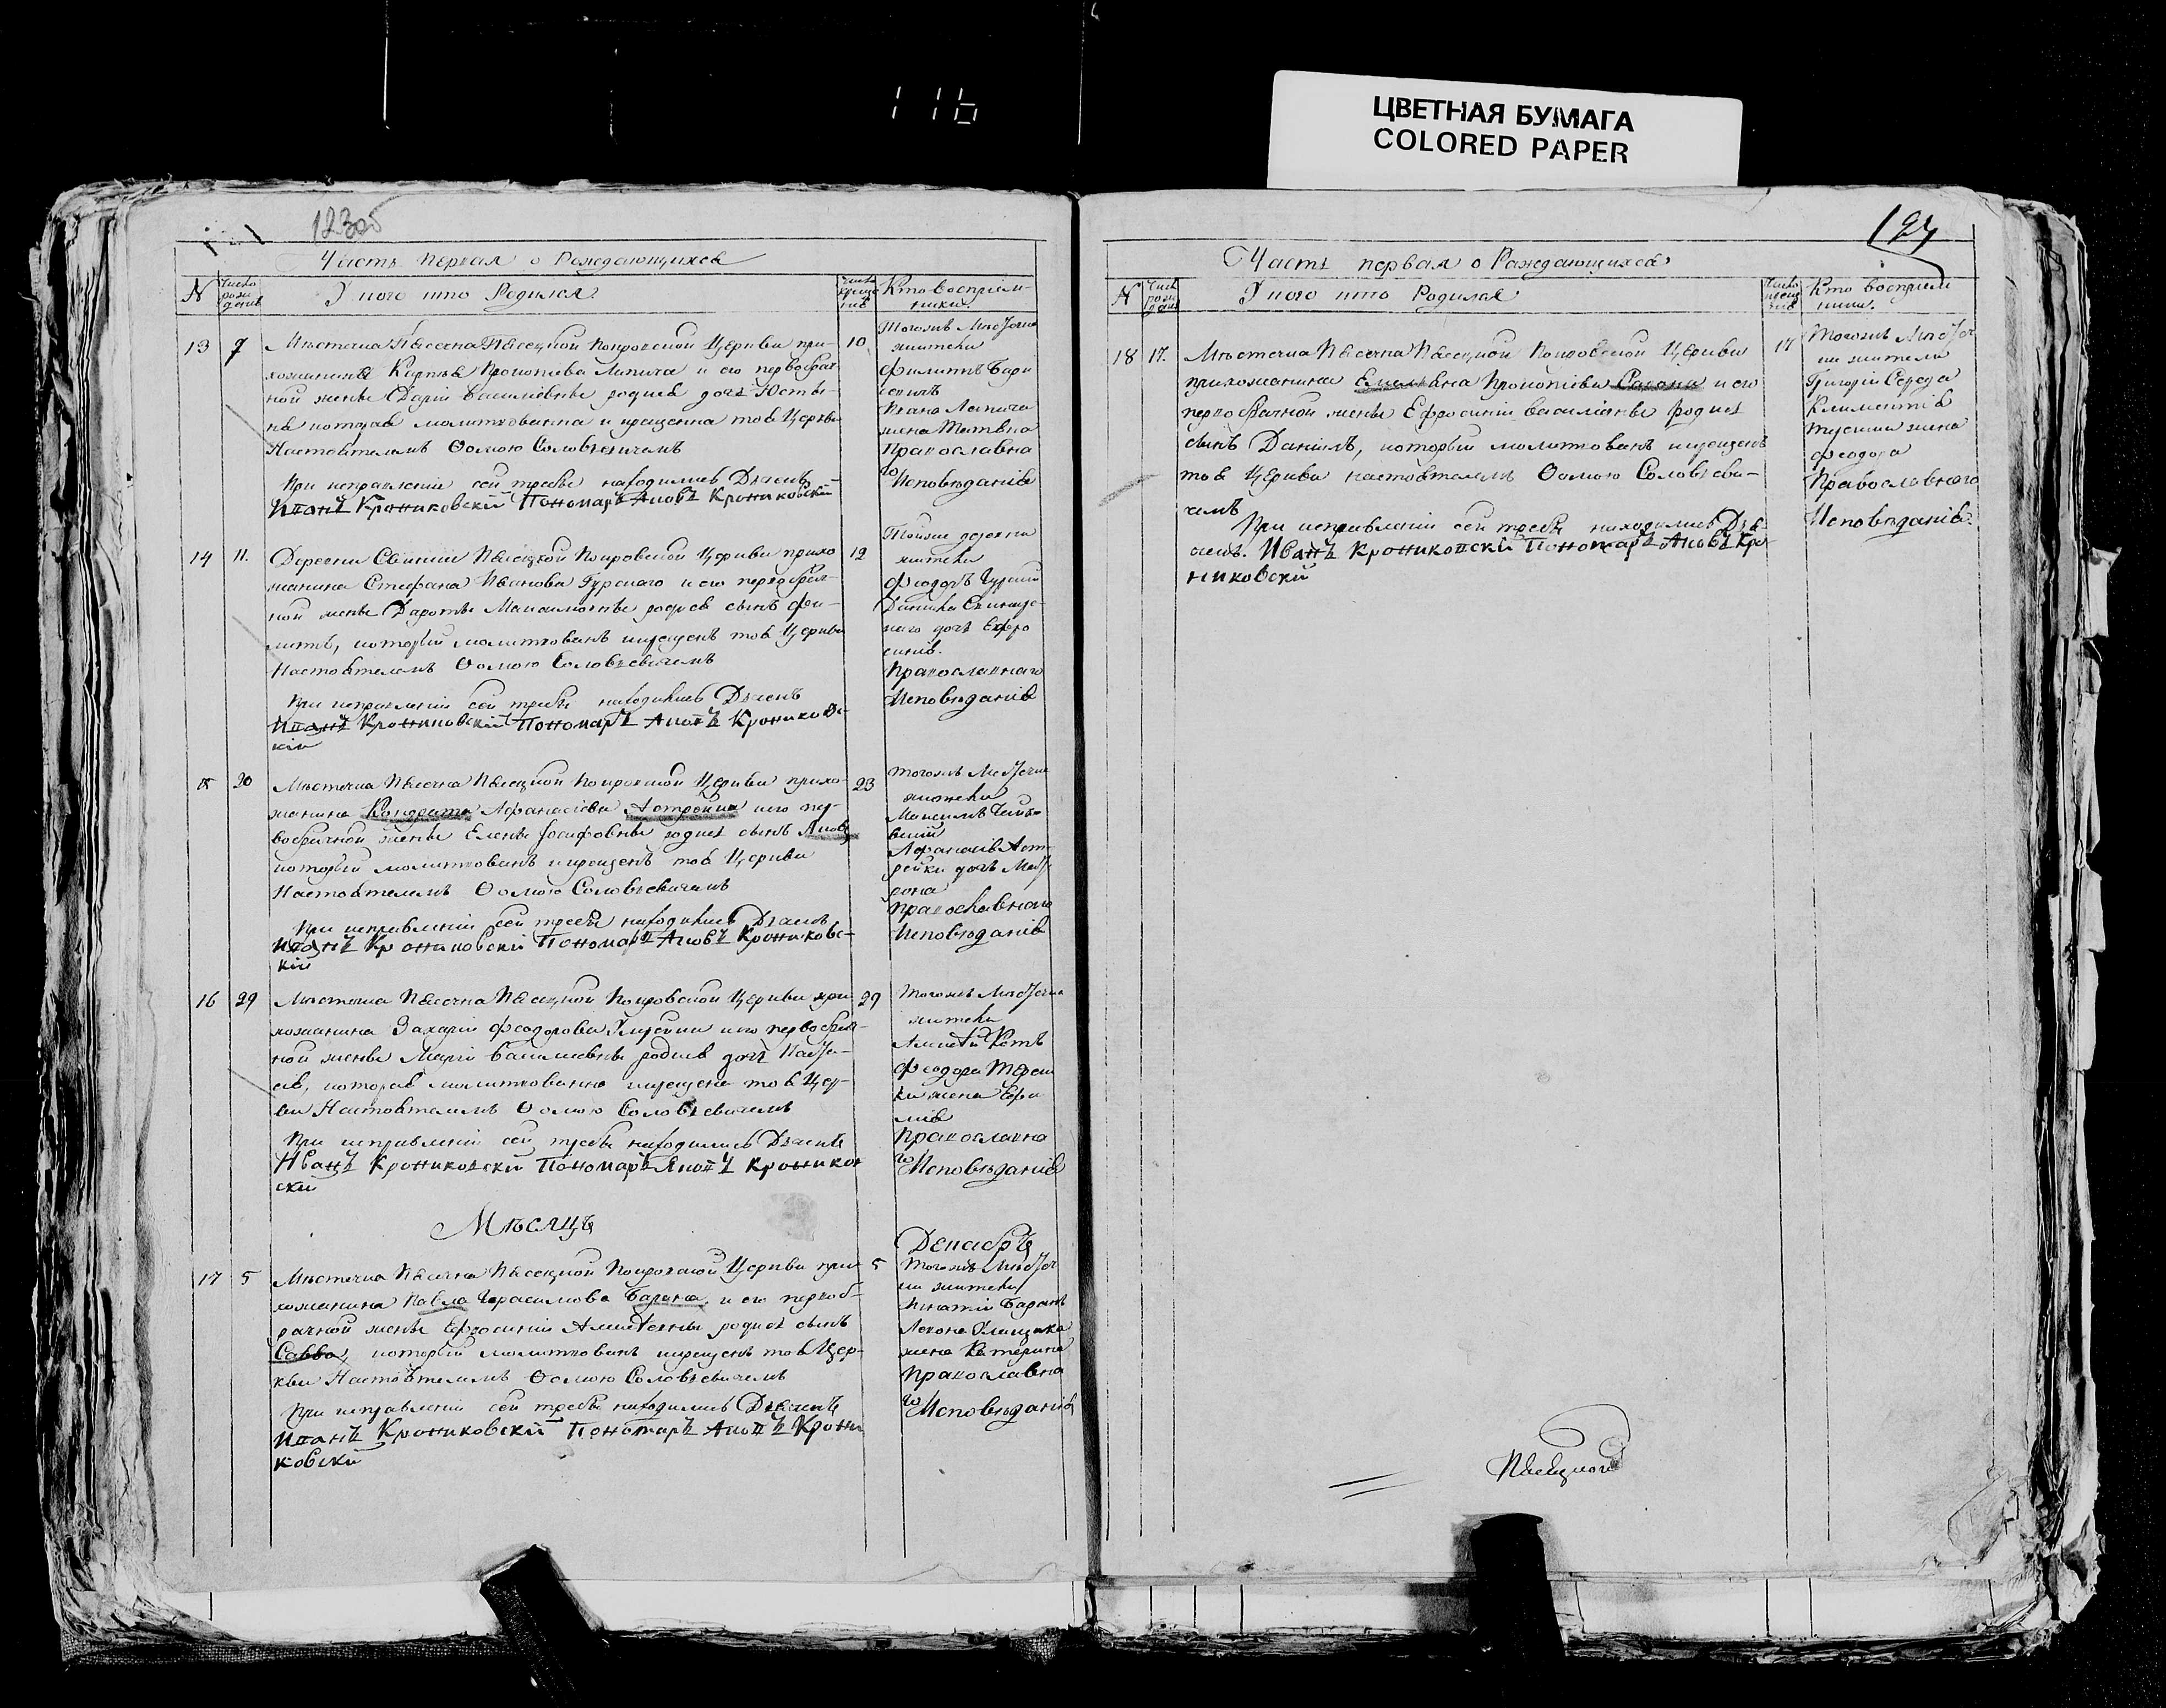 116
ЦВЕТНАЯ БУМАГА
COLORED PAPER
123об
Часть первая о Раждающихся
N
Число рождения
У кого кто Родился
Число крещения
Кто восприемники.
13
7
Мѣстечка Пѣсечна Пѣсецкой Покровской Церкви при-
хожанина Карпа Прокопіева Лапича и его первобрач
ной жены Даріи Василіевны родися дочь Юсты-
на которая молитвованна и крещенна тоя Церкви
Настоятелемъ Ѳомою Соловьевичемъ
При исправленіи сей требы находились Дьячекъ
Иванъ Крониковскій Пономарь Яковъ Крониковскій
10
Тогожъ Мѣстечка
жители
Филиппъ
Ивана Лапича
жена Татьяна
Православна
го Исповѣданія
14
11.
Деревни Пѣсецкой Покровской Церкви прихо
жанина Стефана Иванова Гурскаго и его первобрач-
ной жены Даротьи Максимовны родися сынъ Фи-
липъ, которій молитвованъ и крещенъ тоя Церкви
Настоятелемъ Ѳомою Соловьевичемъ
При исправленіи сей требы находились Дьячекъ
Иванъ Крониковскій Пономарь Яковъ Крониковс-
кій
12
Тойже деревни
жители
Феодоръ Гурскій
Данила
наго дочь Ефро
синія.
Православнаго
Исповѣданія
20
Мѣстечка Пѣсечна Пѣсецкой Покровской Церкви прихо-
жанина Кондрата Афанасіева Астрейка и его пер-
вобрачной жены Елены Іосифовны родися сынъ Яковъ
которій молитвованъ и крещенъ тоя Церкви
Настоятелемъ Ѳомою Соловьевичемъ
При исправленіи сей требы находились Дьячекъ
Иванъ Крониковскій Пономарь Яковъ Крониковс-
кій
23
Тогожъ Мѣстечка
жители
Максимъ
Афанасія Аст-
рейки дочь Мат
рона
Православнаго
Исповѣданія
16
29
Мѣстечка Пѣсечна Пѣсецкой Покровской Церкви при
хожанина Захаріи Феодорова и его первобрач-
ной жены Маріи Василіевны родися дочь Наста-
сія, которая молитвованна крещена тоя Цер-
кви Настоятелемъ Ѳомою Соловьевичемъ
При исправленіи сей требы находились Дьячекъ
Иванъ Крониковскій Пономарь Яковъ Кроников
скій
29
Тогожъ Мѣстечка
жители
Феодора
жена Ефи
мія
Православна
го Исповѣданія
Мѣсяцъ
Декабрь
17
5
Мѣстечка Пѣсечна Пѣсецкой Покровской Церкви при
хожанина Павла Герасимова Барана и его первоб-
рачной жены Ефросиніи родися сынъ
Савва, которій молитвованъ крещенъ тоя Цер-
кви Настоятелемъ Ѳомою Соловьевичемъ
При исправленіи сей требы находились Дьячекъ
Иванъ Крониковскій Пономарь Яковъ Крони
ковскій
5
Тогожъ Мѣстеч
ка жители
Игнатій Баранъ
жена Катерина
Православна
го Исповѣданія
124
Часть первая о Раждающихся
N
Число рождения
У кого кто Родился
Число крещения
Кто восприем
ники.
18
17.
Мѣстечка Пѣсечна Пѣсецкой Покровской Церкви
прихожанина Емельяна Прокопіева и его
первобрачной жены Ефросиніи Василіевны родися
сынъ Даніилъ, которій молитвованъ и крещенъ
тоя Церкви настоятелемъ Ѳомою Соловьеви-
чемъ
При исправленіи сей требы находились Дья-
чекъ. Иванъ Крониковскій Пономарь Яковъ Кро
никовскій
17
Тогожъ Мѣстеч
ка жители
Григорій Середа
Климентія
жена
Феодора
Православнаго
Исповѣданія.
Пѣсецкой